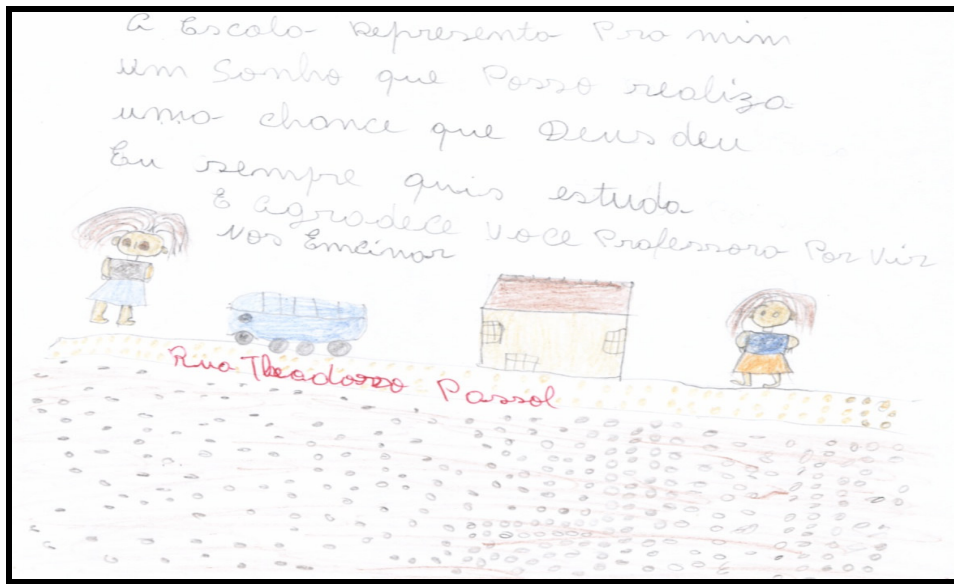 A Escola Representa Pra mim
um Sonho que Posso realiza
uma chance que Deus deu
Eu sempre quis estuda
E agradece Voce Professora Por Vir
Nos Emcinar
Rua Theadorro Passol